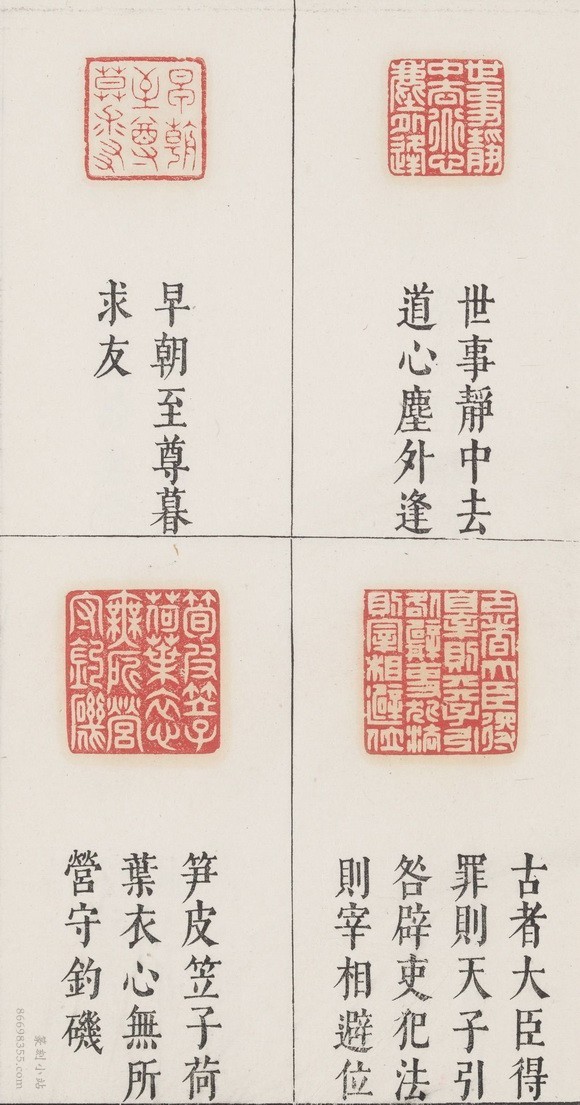 世事靜中去
道心塵外逢
早朝至尊暮
求友
古者大臣得
罪則天子引
咎辟吏犯法
則宰相避位
笋皮笠子荷
葉衣心無所
營守釣磯
篆刻小站
86698355.com